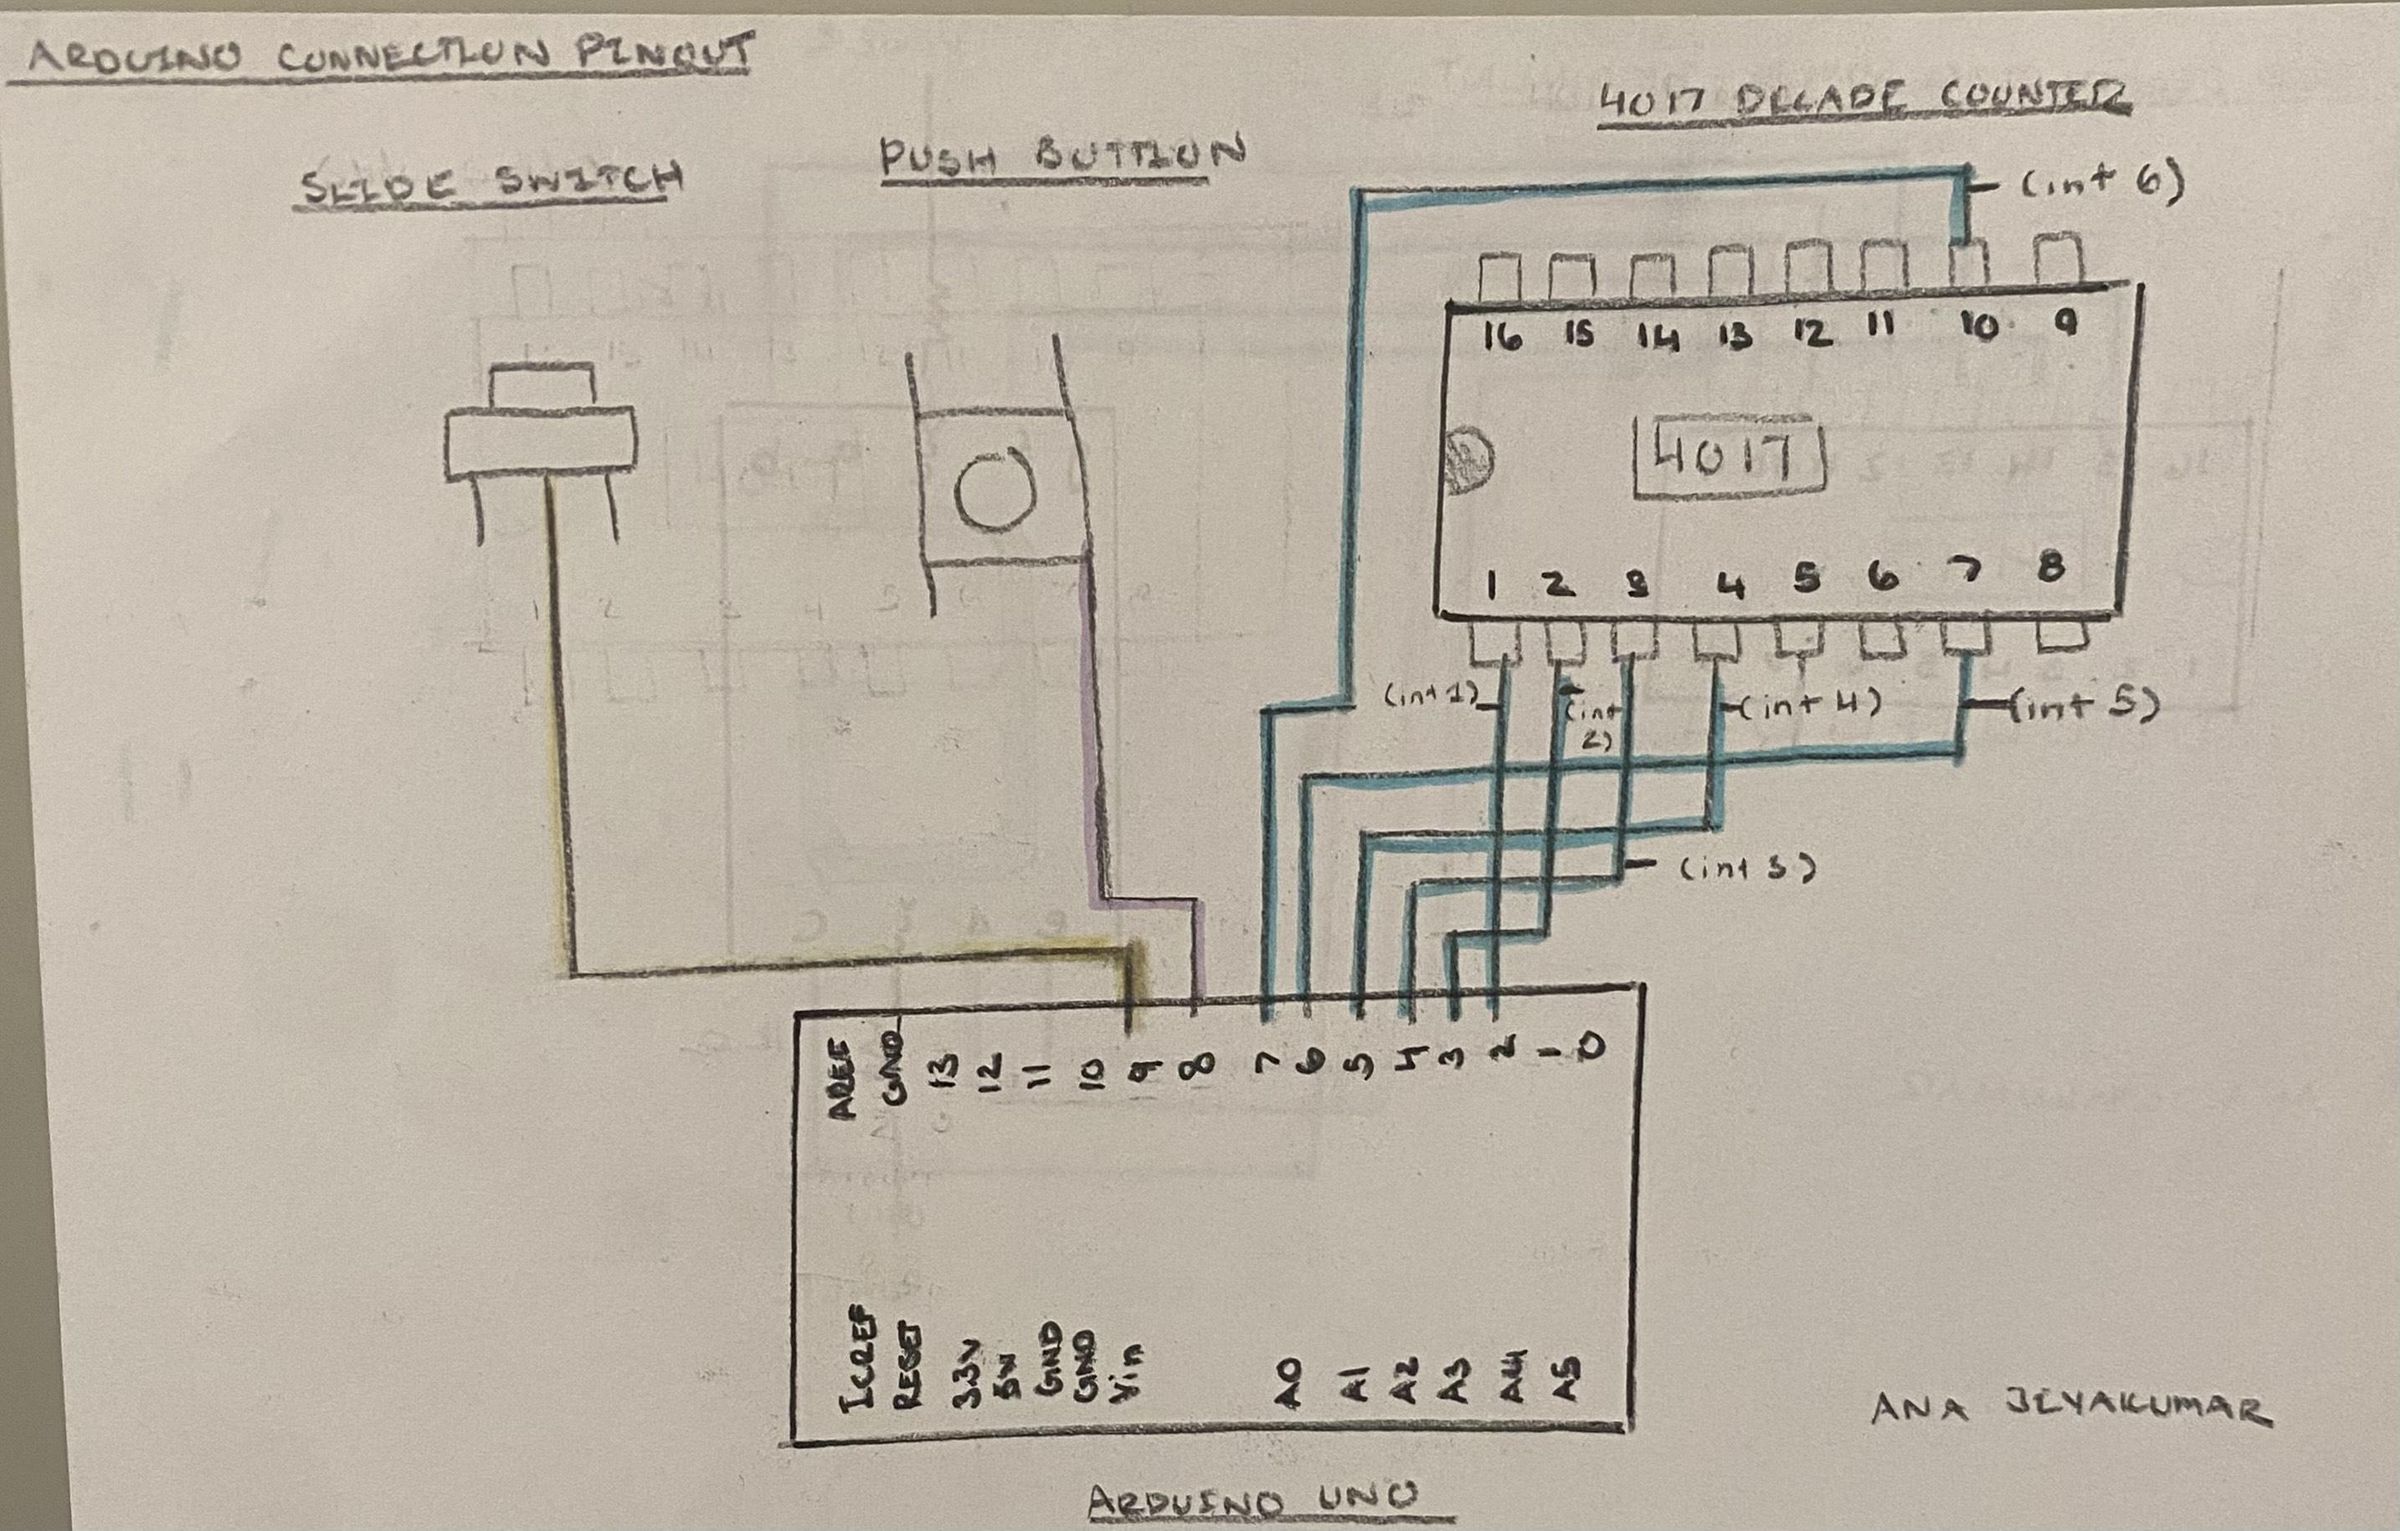 ARDUINO CONNECTION PINOUT
4017 DECADE COUNTER
SLIDE SWITCH
PUSH BUTTON
(int 6)
16 15 14 13 12 11 10 9
4017
1 2 3 4 5 6 7 8
(int 1)
(int
2)
(int 4)
(int 5)
(int 3)
AREF GND 13 12 11 10 9 8 7 6 5 4 3 2 1 0
ICREF RESET 3.3V 5V GND GND Vin A0 A1 A2 A3 A4 A5
ANA JEYAKUMAR
ARDUINO UNO